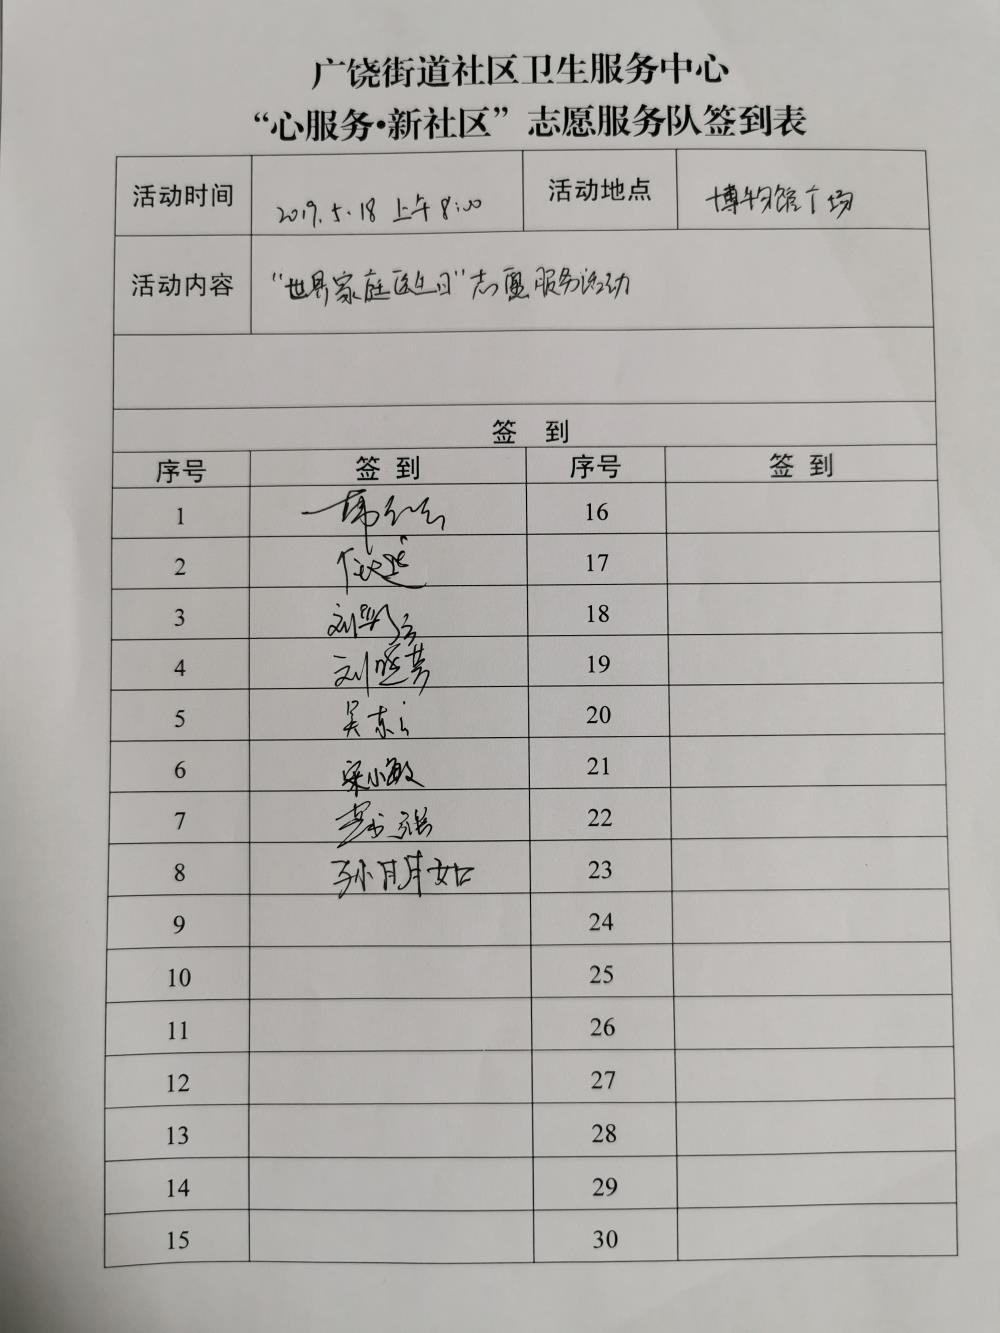 广饶街道社区卫生服务中心
“心服务•新社区”志愿服务队签到表
活动时间 2019.5.18 上午8:00 活动地点 博物馆广场
活动内容 “世界家庭医生日”志愿服务活动
签 到
序号 签 到 序号 签 到
1 16
2 17
3 刘 18
4 刘晓芳 19
5 吴东 20
6 宋小敏 21
7 22
8 孙明月如 23
9 24
10 25
11 26
12 27
13 28
14 29
15 30